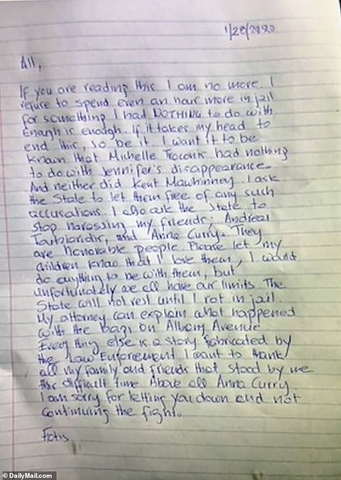 1/28/2020
All,
If you are reading this I am no more. I
refuse to spend even an hour more in jail
for something I had NOTHING to do with
Enough is enough. If it takes my head to
end this, so be it. I want it to be
known that Michelle Troconis had nothing
to do with Jennifer's disappearance.
And neither did Kent Mawhinney. I ask
the State to let them free of any such
accusations. I also ask the State to
stop harassing my friends; Andreas
and Anna Curry. They
are honorable people Please let my
children know that I love them, I would
do anything to be with them, but
unfortunately we all have our limits. The
State will not rest until I rot in jail.
My attorney can explain what happened
with the bags on Albany Avenue.
Everything else is a story fabricated by
the Law Enforcement. I want to thank
all my family and friends that stood by me
this difficult time. Above all Anna Curry.
I am sorry for letting you down and not
continuing the fight.
Fotis
© DailyMail.com